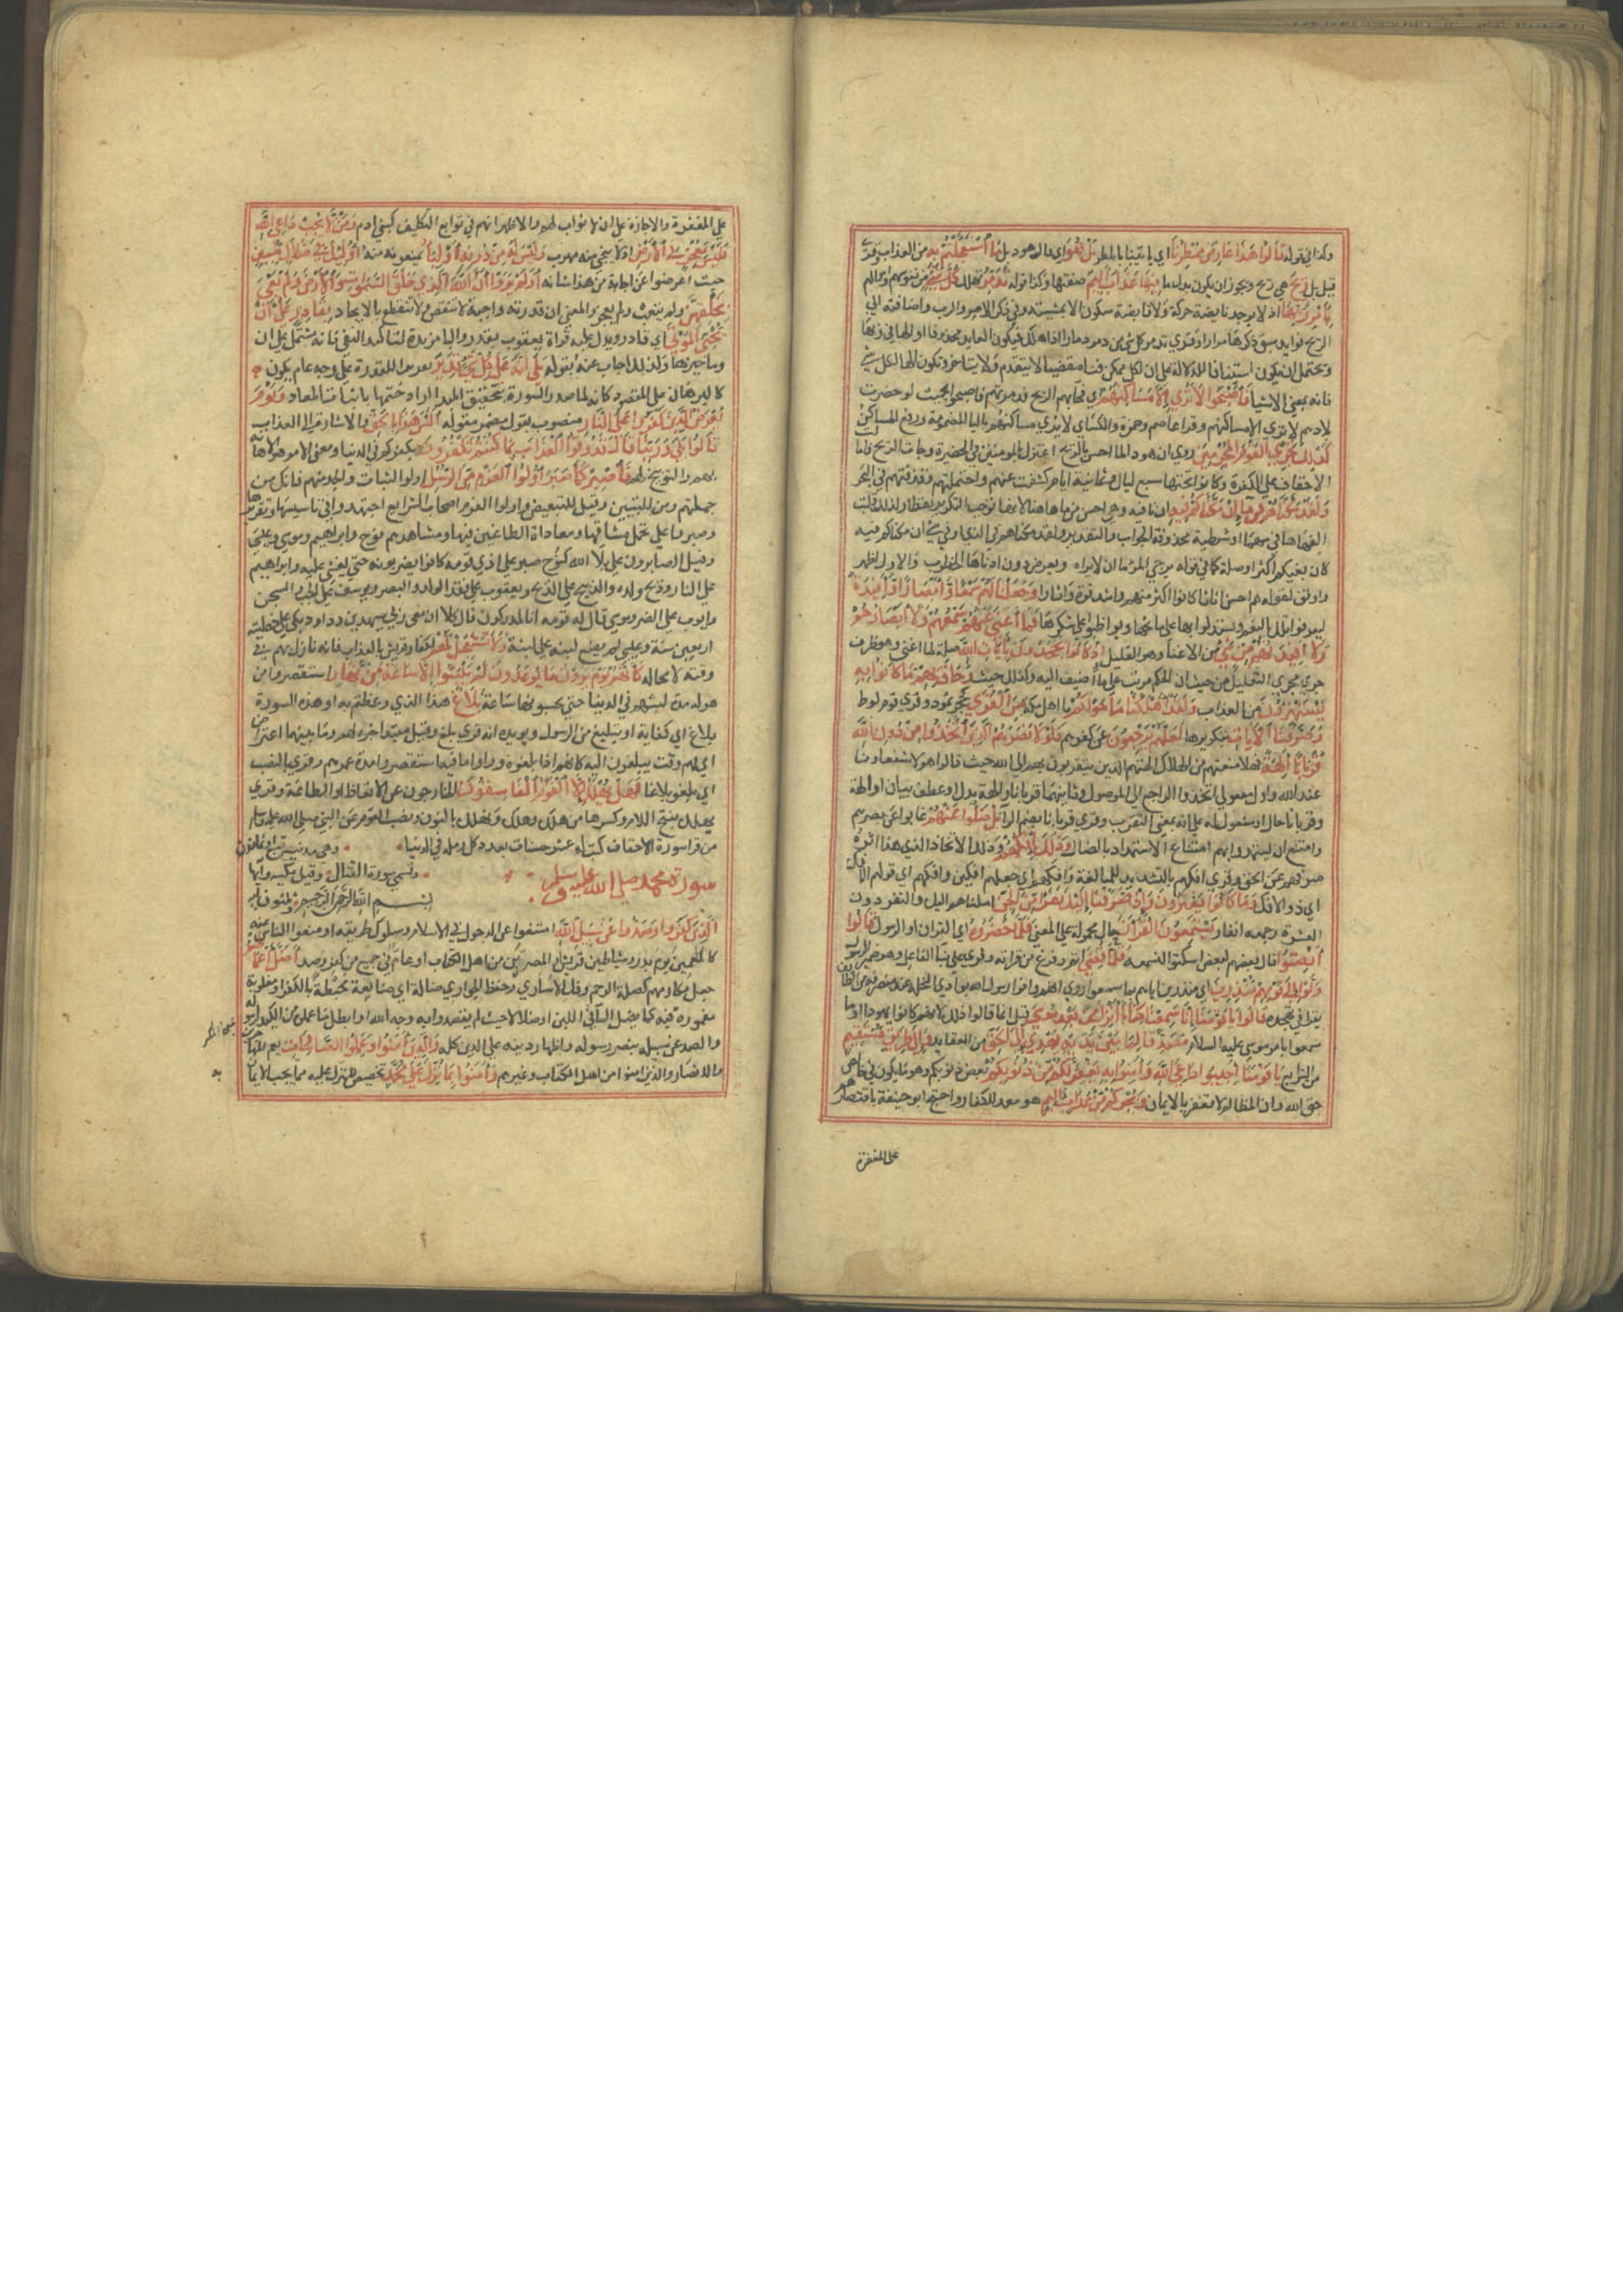 وكذا في قوله قالوا هذا عارض ممطرنا اي ياتينا بالمطر بل هو اي قال هود بل ما استعجلتم به من العذاب وقرئ
قيل بل ريح هي ريح ويجوز ان يكون بدل ما فيها عذاب اليم صفتها وكذا قوله تدمر تهلك كل شئ من نفوسهم واموالهم
بامر ربها اذ لا يوجد نابضة حركة ولا قابضة سكون الا بمشيته وفي ذكر الامر والرب واضافته الي
الريح فوايد سبق ذكرها مرارا وقري تدمر كل شئ من دمر دمارا اذا هلك فيكون العايد محذوفا او الها في ربها
ويحتمل ان يكون استئنافا للدلالة علي ان لكل ممكن فناء مقضيا لا يتقدم ولا يتاخر وتكون الها لكل شئ
فانه بمعني الاشيا فاصبحوا لا تري الا مساكنهم اي فجاءتهم الريح فدمرتهم فاصبحوا بحيث لو حضرت
بلادهم لا تري الا مساكنهم وقرا عاصم وحمزة والكسائي لا يري الا مساكنهم باليا المضمومة ورفع المساكن
كذلك نجزي القوم المجرمين روي ان هودا لما احس بالريح اعتزل بالمومنين في الحظيرة وجات الريح فامالت
الاحقاف علي الكفرة وكانوا تحتها سبع ليال وثمانية ايام ثم كشفت عنهم واحتملتهم وقذفتهم في البحر
ولقد مكناهم فيما ان مكناكم فيه ان نافيه وهي احسن من ما هاهنا لانها توجب التكرير لفظا ولذلك قلبت
الفها ها في مهما او شرطية محذوفة الجواب والتقدير ولقد مكناهم في الذي او في شئ ان مكناكم فيه
كان بغيكم اكثر او صلة كما في قوله يرجي المرء ما ان لا يراه ويعرض دون ادناها الخطوب والاول اظهر
واوفق لقوله هم احسن اثاثا كانوا اكثر منهم واشد قوة واثارا وجعلنا لهم سمعا وابصارا وافئدة
ليعرفوا تلك النعم ويستدلوا بها علي مانحها ويواظبوا علي شكرها فما اغني عنهم سمعهم ولا ابصارهم
ولا افئدتهم من شئ من الاغنا وهو القليل اذ كانوا يجحدون بايات الله صلة لما اغني وهو ظرف
جري مجري التعليل من حيث ان الحكم مرتب علي ما اضيف اليه وكذلك حيث وحاق بهم ما كانوا به
يستهزؤن من العذاب ولقد اهلكنا ما حولكم يا اهل مكة من القري كحجر ثمود وقري قوم لوط
وصرفنا الايات بتكريرها لعلهم يرجعون عن كفرهم فلولا نصرهم الذين اتخذوا من دون الله
قربانا الهة فهلا منعتهم من الهلاك الهتهم الذين يتقربون بهم الي الله حيث قالوا هولا شفعاونا
عند الله واول مفعولي اتخذوا الراجع الي الموصول وثانيهما قربانا والهة بدل او عطف بيان او الهة
وقربانا حال او مفعول له علي انه بمعني التقرب وقري قربانا بضم الرا بل ضلوا عنهم غابوا عن نصرهم
وامتنع ان يستمدوا بهم امتناع الاستمداد بالضال وذلك افكهم وذلك الاتخاذ الذي هذا اثره
صرفهم عن الحق وقري افكهم بالتشديد للمبالغة وافكهم اي جعلهم افكين وافكهم اي قولهم الافك
اي ذو الافك وما كانوا يفترون واذ صرفنا اليك نفرا من الجن املناهم اليك والنفر دون
العشرة وجمعه انفار يستمعون القران حال محمولة علي المعني فلما حضروه اي القران او الرسول قالوا
انصتوا قال بعضهم لبعض اسكتوا لنسمعه فلما قضي اتم وفرغ من قراته وقري علي بنا الفاعل وهو ضمير الرسول
ولوا الي قومهم منذرين اي منذرين اياهم بما سمعوا روي انهم وافوا رسول الله بوادي النخلة عند منصرفه من الطائف
يقرا في تهجده قالوا يا قومنا انا سمعنا كتابا انزل من بعد موسي قيل انما قالوا ذلك لانهم كانوا يهودا او ما
سمعوا بامر عيسي عليه السلام مصدقا لما بين يديه يهدي الي الحق من العقايد والي طريق مستقيم
من الشرايع يا قومنا اجيبوا داعي الله وامنوا به يغفر لكم من ذنوبكم بعض ذنوبكم وهو ما يكون في خالص
حق الله فان المظالم لا تغفر بالايمان ويجركم من عذاب اليم هو معد للكفار واحتج ابو حنيفة باقتصارهم
علي المغفرة
علي المغفرة والاجارة علي ان لا ثواب لهم والاظهر انهم في توابع التكليف كبني ادم ومن لا يجب داعي الله
فليس بمعجز في الارض اذ لا ينجي منه مهرب وليس له من دونه اوليا يمنعونه منه اوليك في ضلال مبين
حيث اعرضوا عن اجابة من هذا شانه اولم يروا ان الله الذي خلق السموات والارض ولم يعي
بخلقهن ولم يتعب ولم يعجز والمعني ان قدرته واجبة لا تنقص ولا تنقطع بالايجاد بقادر علي ان
يحيي الموتي اي قادر ويدل عليه قراة يعقوب يقدر والبا مزيدة لتاكيد النفي فانه مشتمل علي ان
وما حيزها ولذلك اجاب عنه بقوله بلي انه علي كل شئ قدير تقريرا للقدرة علي وجه عام يكون
كالبرهان علي المقصود كانه لما صدر السورة بتحقيق المبدا اراد ختمها باثبات المعاد ويوم
يعرض الذين كفروا علي النار منصوب بقول مضمر مقوله اليس هذا بالحق والاشارة الي العذاب
قالوا بلي وربنا قال فذوقوا العذاب بما كنتم تكفرون بكفركم في الدنيا ومعني الامر هو الاهانة
بهم والتوبيخ لهم فاصبر كما صبر اولوا العزم من الرسل اولوا الثبات والجد منهم فانك من
جملتهم ومن للتبيين وقيل للتبعيض واولوا العزم اصحاب الشرايع اجتهدوا في تاسيسها وتقريرها
وصبروا علي تحمل مشاقها ومعاداة الطاعنين فيها ومشاهيرهم نوح وابراهيم وموسي وعيسي
وقيل الصابرون علي بلا الله كنوح صبر علي اذي قومه كانوا يضربونه حتي يغشي عليه وابراهيم
علي النار وذبح ولده والذبيح علي الذبح ويعقوب علي فقد الولد والبصر ويوسف علي الجب والسجن
وايوب علي الضر وموسي قال له قومه انا لمدركون قال كلا ان معي ربي سيهدين وداود بكي علي خطيئته
اربعين سنة وعيسي لم يضع لبنة علي لبنة ولا تستعجل لهم لكفار قريش بالعذاب فانه نازل بهم في
وقته لا محالة كانهم يوم يرون ما يوعدون لم يلبثوا الا ساعة من نهار استقصروا من
هوله مدة لبثهم في الدنيا حتي يحسبونها ساعة بلاغ هذا الذي وعظتم به او هذه السورة
بلاغ اي كفاية او تبليغ من الرسول ويويده انه قري بلغ وقيل مبتدا خبره لهم وما بينهما اعتراض
اي لهم وقت يبلغون اليه كانهم اذا بلغوه وراوا ما فيه استقصروا مدة عمرهم وقري بالنصب
اي بلغوا بلاغا فهل يهلك الا القوم الفاسقون الخارجون عن الاتعاظ او الطاعة وقري
يهلك بفتح اللام وكسرها من هلك وهلك ونهلك بالنون ونصب القوم عن النبي صلي الله عليه وسلم
من قرا سورة الاحقاف كتب له عشر حسنات بعدد كل رملة في الدنيا
سورة محمد صلي الله عليه وسلم وتسمي سورة القتال وقيل مكية وايها
بسم الله الرحمن الرحيم
الذين كفروا وصدوا عن سبيل الله امتنعوا عن الدخول في الاسلام وسلوك طريقه او منعوا الناس عنه
كالمطعمين يوم بدر وشياطين قريش او المصرين من اهل الكتاب او عام في جميع من كفر وصد اضل اعمالهم
جعل مكارمهم كصلة الرحم وفك الاساري وحفظ الجوار ضالة اي ضائعة محبطة بالكفر او مغلوبة
مغمورة فيه كما يضل الماء في اللبن او ضلالا حيث لم يقصدوا به وجه الله او ابطل ما عملوه من الكيد لرسوله
والصد عن سبيله بنصر رسوله واظهار دينه علي الدين كله والذين امنوا وعملوا الصالحات يعم المهاجرين
والانصار والذين امنوا من اهل الكتاب وغيرهم وامنوا بما نزل علي محمد تخصيص للمنزل عليه مما يجب الايمان
به